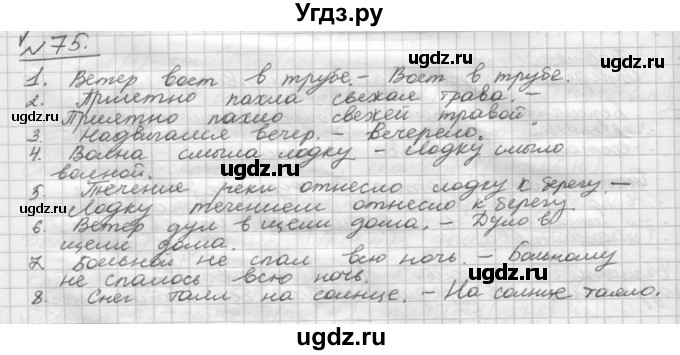 Угдз.ру
№75.
1. Ветер воет в трубе. – Воет в трубе.
2. Приятно пахла свежая трава. –
Приятно пахло свежей травой.
3. Надвигался вечер. – Вечерело.
4. Волна смыла лодку – Лодку смыло
волной.
5. Течение реки отнесло лодку к берегу. –
Лодку течением отнесло к берегу.
6. Ветер дул в щели дома. – Дуло в
щели дома.
7. Больной не спал всю ночь. – Больному
не спалось всю ночь.
8. Снег таял на солнце. – На солнце таяло.
uгдз.ru
uгдз.ru
uгдз.ru
uгдз.ru
uгдз.ru
uгдз.ru
uгдз.ru
Угдз.ру